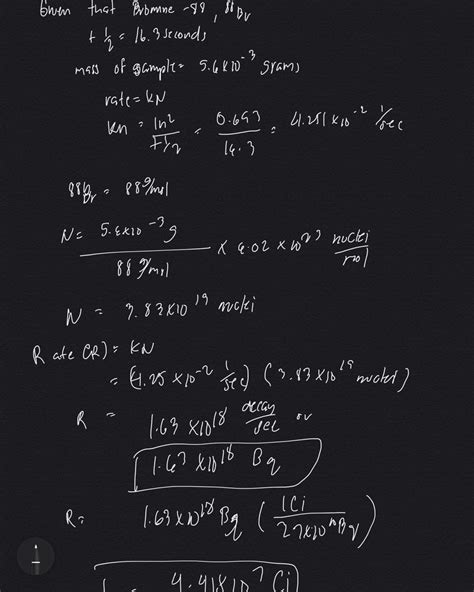 Given that Bromine -88, 88Br
t 1/2 = 16.3 seconds
mass of sample = 5.6x10^-3 grams
rate = kN
kn = ln2 / t1/2 = 0.693 / 16.3 = 4.251 x10^-2 1/sec
88Br = 88 g/mol
N = 5.6x10^-3 g / 88 g/mol x 6.02 x 10^23 nuclei/mol
N = 3.83x10^19 nuclei
Rate (R) = kN
= (4.25 x10^-2 1/sec) (3.83 x10^19 nuclei)
R = 1.63 x10^18 decay/sec or
1.63 x10^18 Bq
R = 1.63x10^18 Bq (1Ci / 27x10^10 Bq)
4.41x10^7 Ci